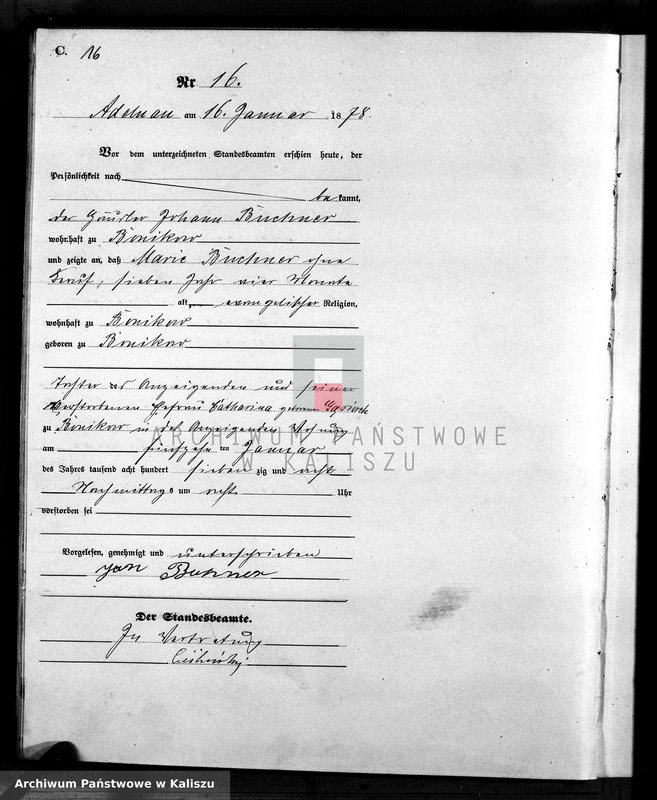 C. 16
Nr 16.
Adelnau am 16. Januar 1878.
Vor dem unterzeichneten Standesbeamten erschien heute, der
Persönlichkeit nach
bekannt,
der Häusler Johann Buchner
wohnhaft zu Bonikow
und zeigte an, daß Marie Buchner ohne
Beruf, sieben Jahr vier Monate
alt, evangelischer Religion,
wohnhaft zu Bonikow
geboren zu Bonikow
Tochter des Anzeigenden und seiner
verstorbenen Ehefrau Catharina geborenen
zu Bonikow in des Anzeigenden Wohnung
am fünfzehn ten Januar
des Jahres tausend acht hundert sieben zig und acht
Nachmittags um acht Uhr
verstorben sei
Vorgelesen, genehmigt und unterschrieben
Jan Buhner
Der Standesbeamte.
In Vertretung
ARCHIWUM PAŃSTWOWE
W KALISZU
Archiwum Państwowe w Kaliszu